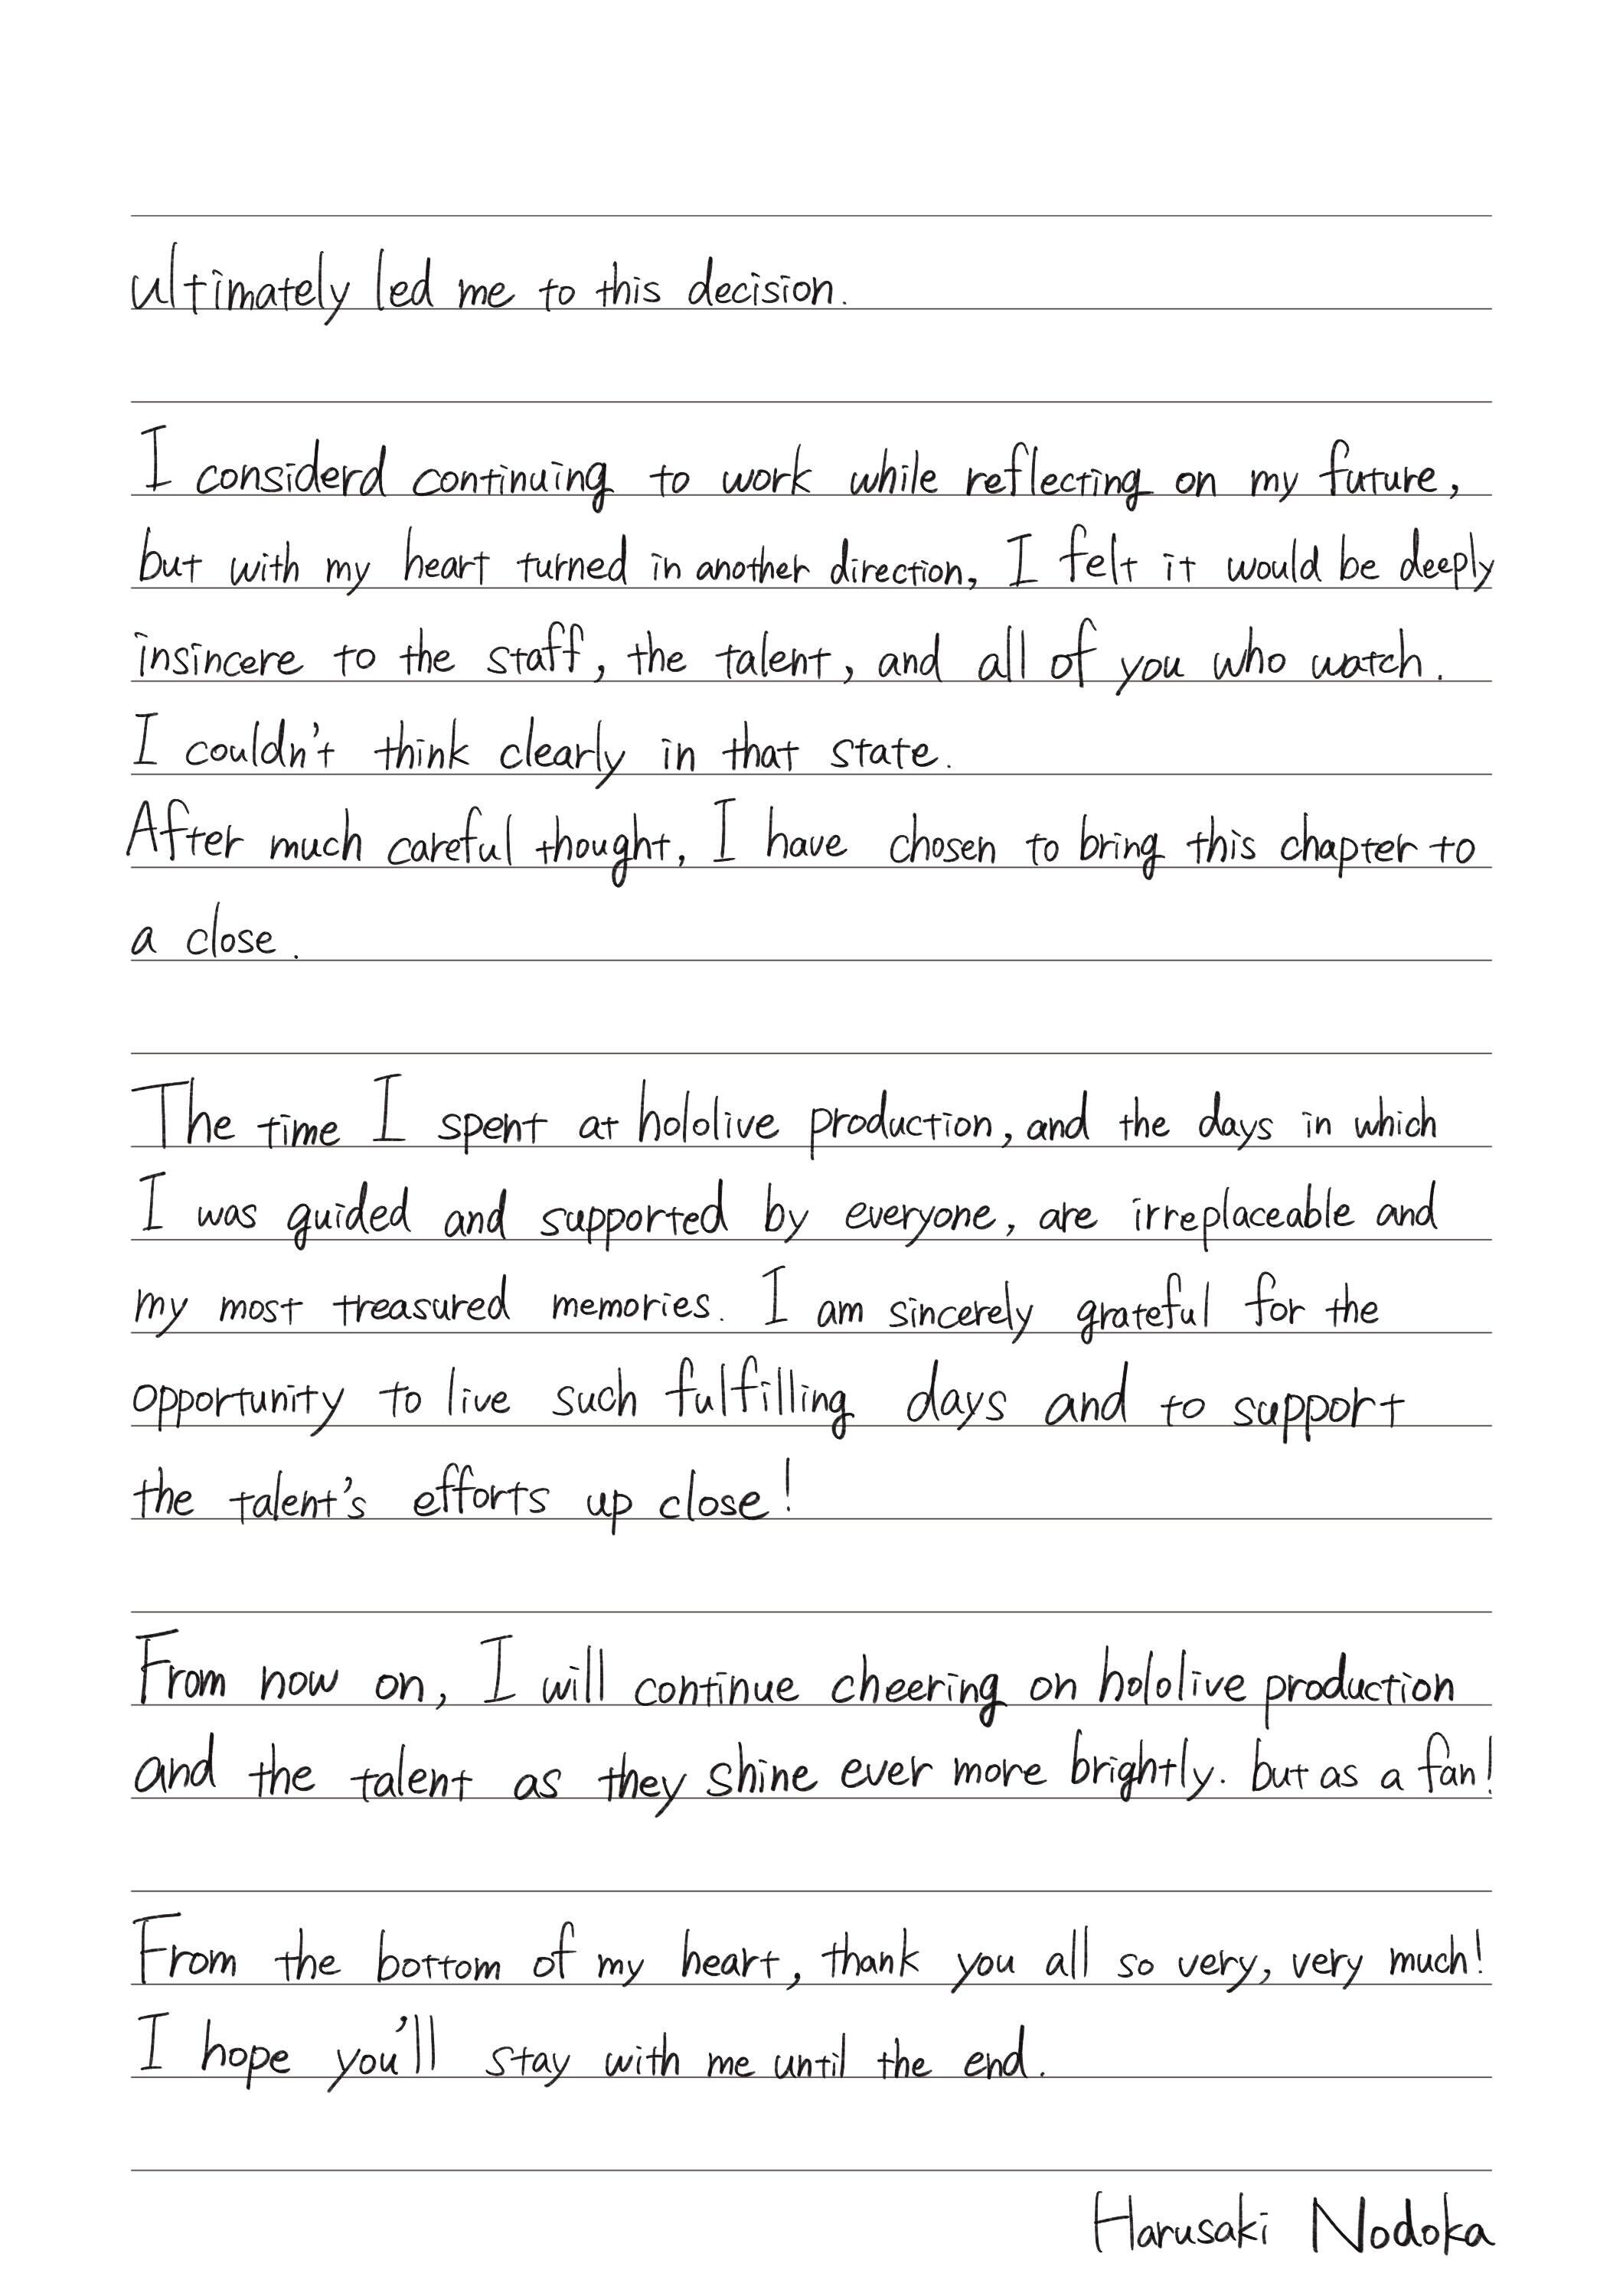 ultimately led me to this decision.
I considerd continuing to work while reflecting on my future,
but with my heart turned in another direction, I felt it would be deeply
insincere to the staff, the talent, and all of you who watch.
I couldn't think clearly in that state.
After much careful thought, I have chosen to bring this chapter to
a close.
The time I spent at hololive production, and the days in which
I was guided and supported by everyone, are irreplaceable and
my most treasured memories. I am sincerely grateful for the
opportunity to live such fulfilling days and to support
the talent's efforts up close!
From now on, I will continue cheering on hololive production
and the talent as they shine ever more brightly. but as a fan!
From the bottom of my heart, thank you all so very, very much!
I hope you'll stay with me until the end.
Harusaki Nodoka